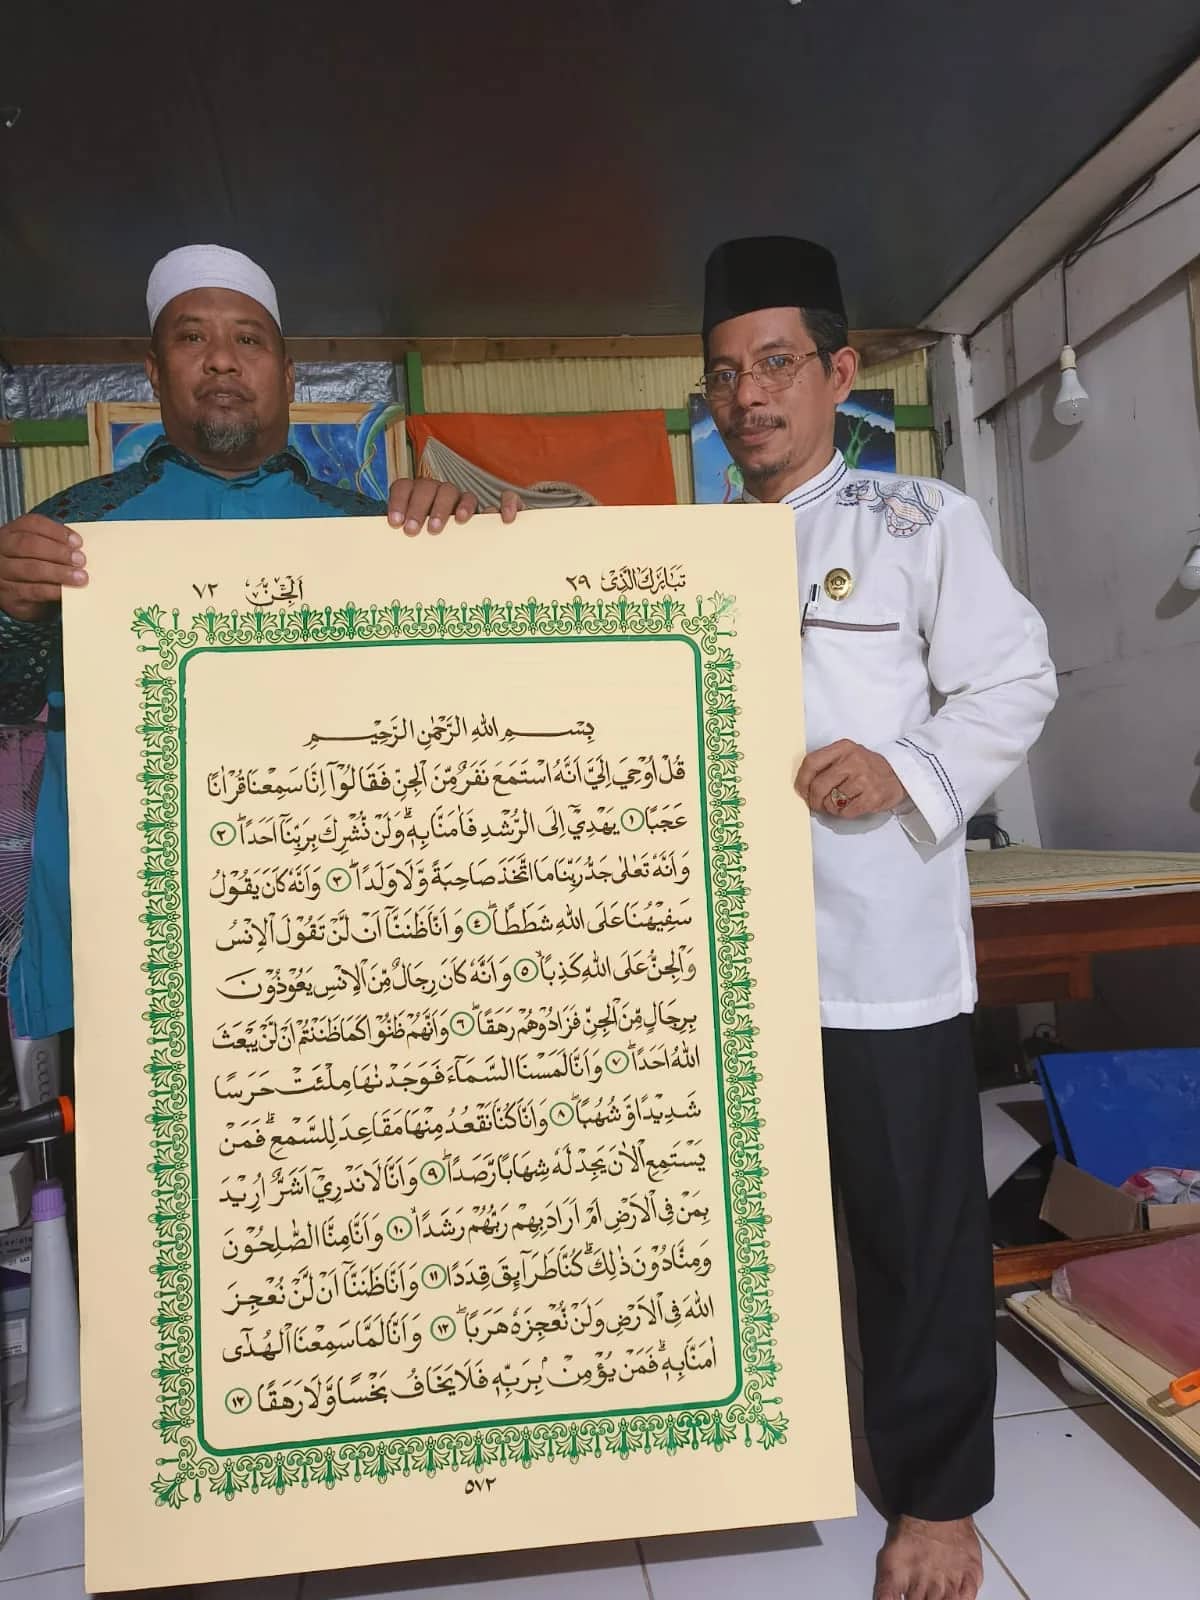 تَبَارَكَ الَّذِىْ ٢٩
اَلْجِنّ ٧٢
بِسْمِ اللهِ الرَّحْمٰنِ الرَّحِيْمِ
قُلْ اُوْحِيَ اِلَيَّ اَنَّهُ اسْتَمَعَ نَفَرٌ مِّنَ الْجِنِّ فَقَالُوْٓا اِنَّا سَمِعْنَا قُرْاٰنًا
عَجَبًا ١ يَهْدِيْٓ اِلَى الرُّشْدِ فَاٰمَنَّا بِهٖ ۗوَلَنْ نُّشْرِكَ بِرَبِّنَآ اَحَدًا ۖ ٢
وَاَنَّهٗ تَعٰلٰى جَدُّ رَبِّنَا مَا اتَّخَذَ صَاحِبَةً وَّلَا وَلَدًا ۖ ٣ وَاَنَّهٗ كَانَ يَقُوْلُ
سَفِيْهُنَا عَلَى اللهِ شَطَطًا ۖ ٤ وَاَنَّا ظَنَنَّآ اَنْ لَّنْ تَقُوْلَ الْاِنْسُ
وَالْجِنُّ عَلَى اللهِ كَذِبًا ۙ ٥ وَاَنَّهٗ كَانَ رِجَالٌ مِّنَ الْاِنْسِ يَعُوْذُوْنَ
بِرِجَالٍ مِّنَ الْجِنِّ فَزَادُوْهُمْ رَهَقًا ۖ ٦ وَاَنَّهُمْ ظَنُّوْا كَمَا ظَنَنْتُمْ اَنْ لَّنْ يَّبْعَثَ
اللهُ اَحَدًا ۖ ٧ وَاَنَّا لَمَسْنَا السَّمَاۤءَ فَوَجَدْنٰهَا مُلِئَتْ حَرَسًا
شَدِيْدًا وَّشُهُبًا ۖ ٨ وَاَنَّا كُنَّا نَقْعُدُ مِنْهَا مَقَاعِدَ لِلسَّمْعِ ۗ فَمَنْ
يَّسْتَمِعِ الْاٰنَ يَجِدْ لَهٗ شِهَابًا رَّصَدًا ۖ ٩ وَاَنَّا لَا نَدْرِيْٓ اَشَرٌّ اُرِيْدَ
بِمَنْ فِى الْاَرْضِ اَمْ اَرَادَ بِهِمْ رَبُّهُمْ رَشَدًا ۙ ١٠ وَاَنَّا مِنَّا الصّٰلِحُوْنَ
وَمِنَّا دُوْنَ ذٰلِكَ ۗ كُنَّا طَرَاۤىِٕقَ قِدَدًا ۙ ١١ وَاَنَّا ظَنَنَّآ اَنْ لَّنْ نُّعْجِزَ
اللهَ فِى الْاَرْضِ وَلَنْ نُّعْجِزَهٗ هَرَبًا ۖ ١٢ وَاَنَّا لَمَّا سَمِعْنَا الْهُدٰٓى
اٰمَنَّا بِهٖ ۗ فَمَنْ يُّؤْمِنْۢ بِرَبِّهٖ فَلَا يَخَافُ بَخْسًا وَّلَا رَهَقًا ١٣
٥٧٢